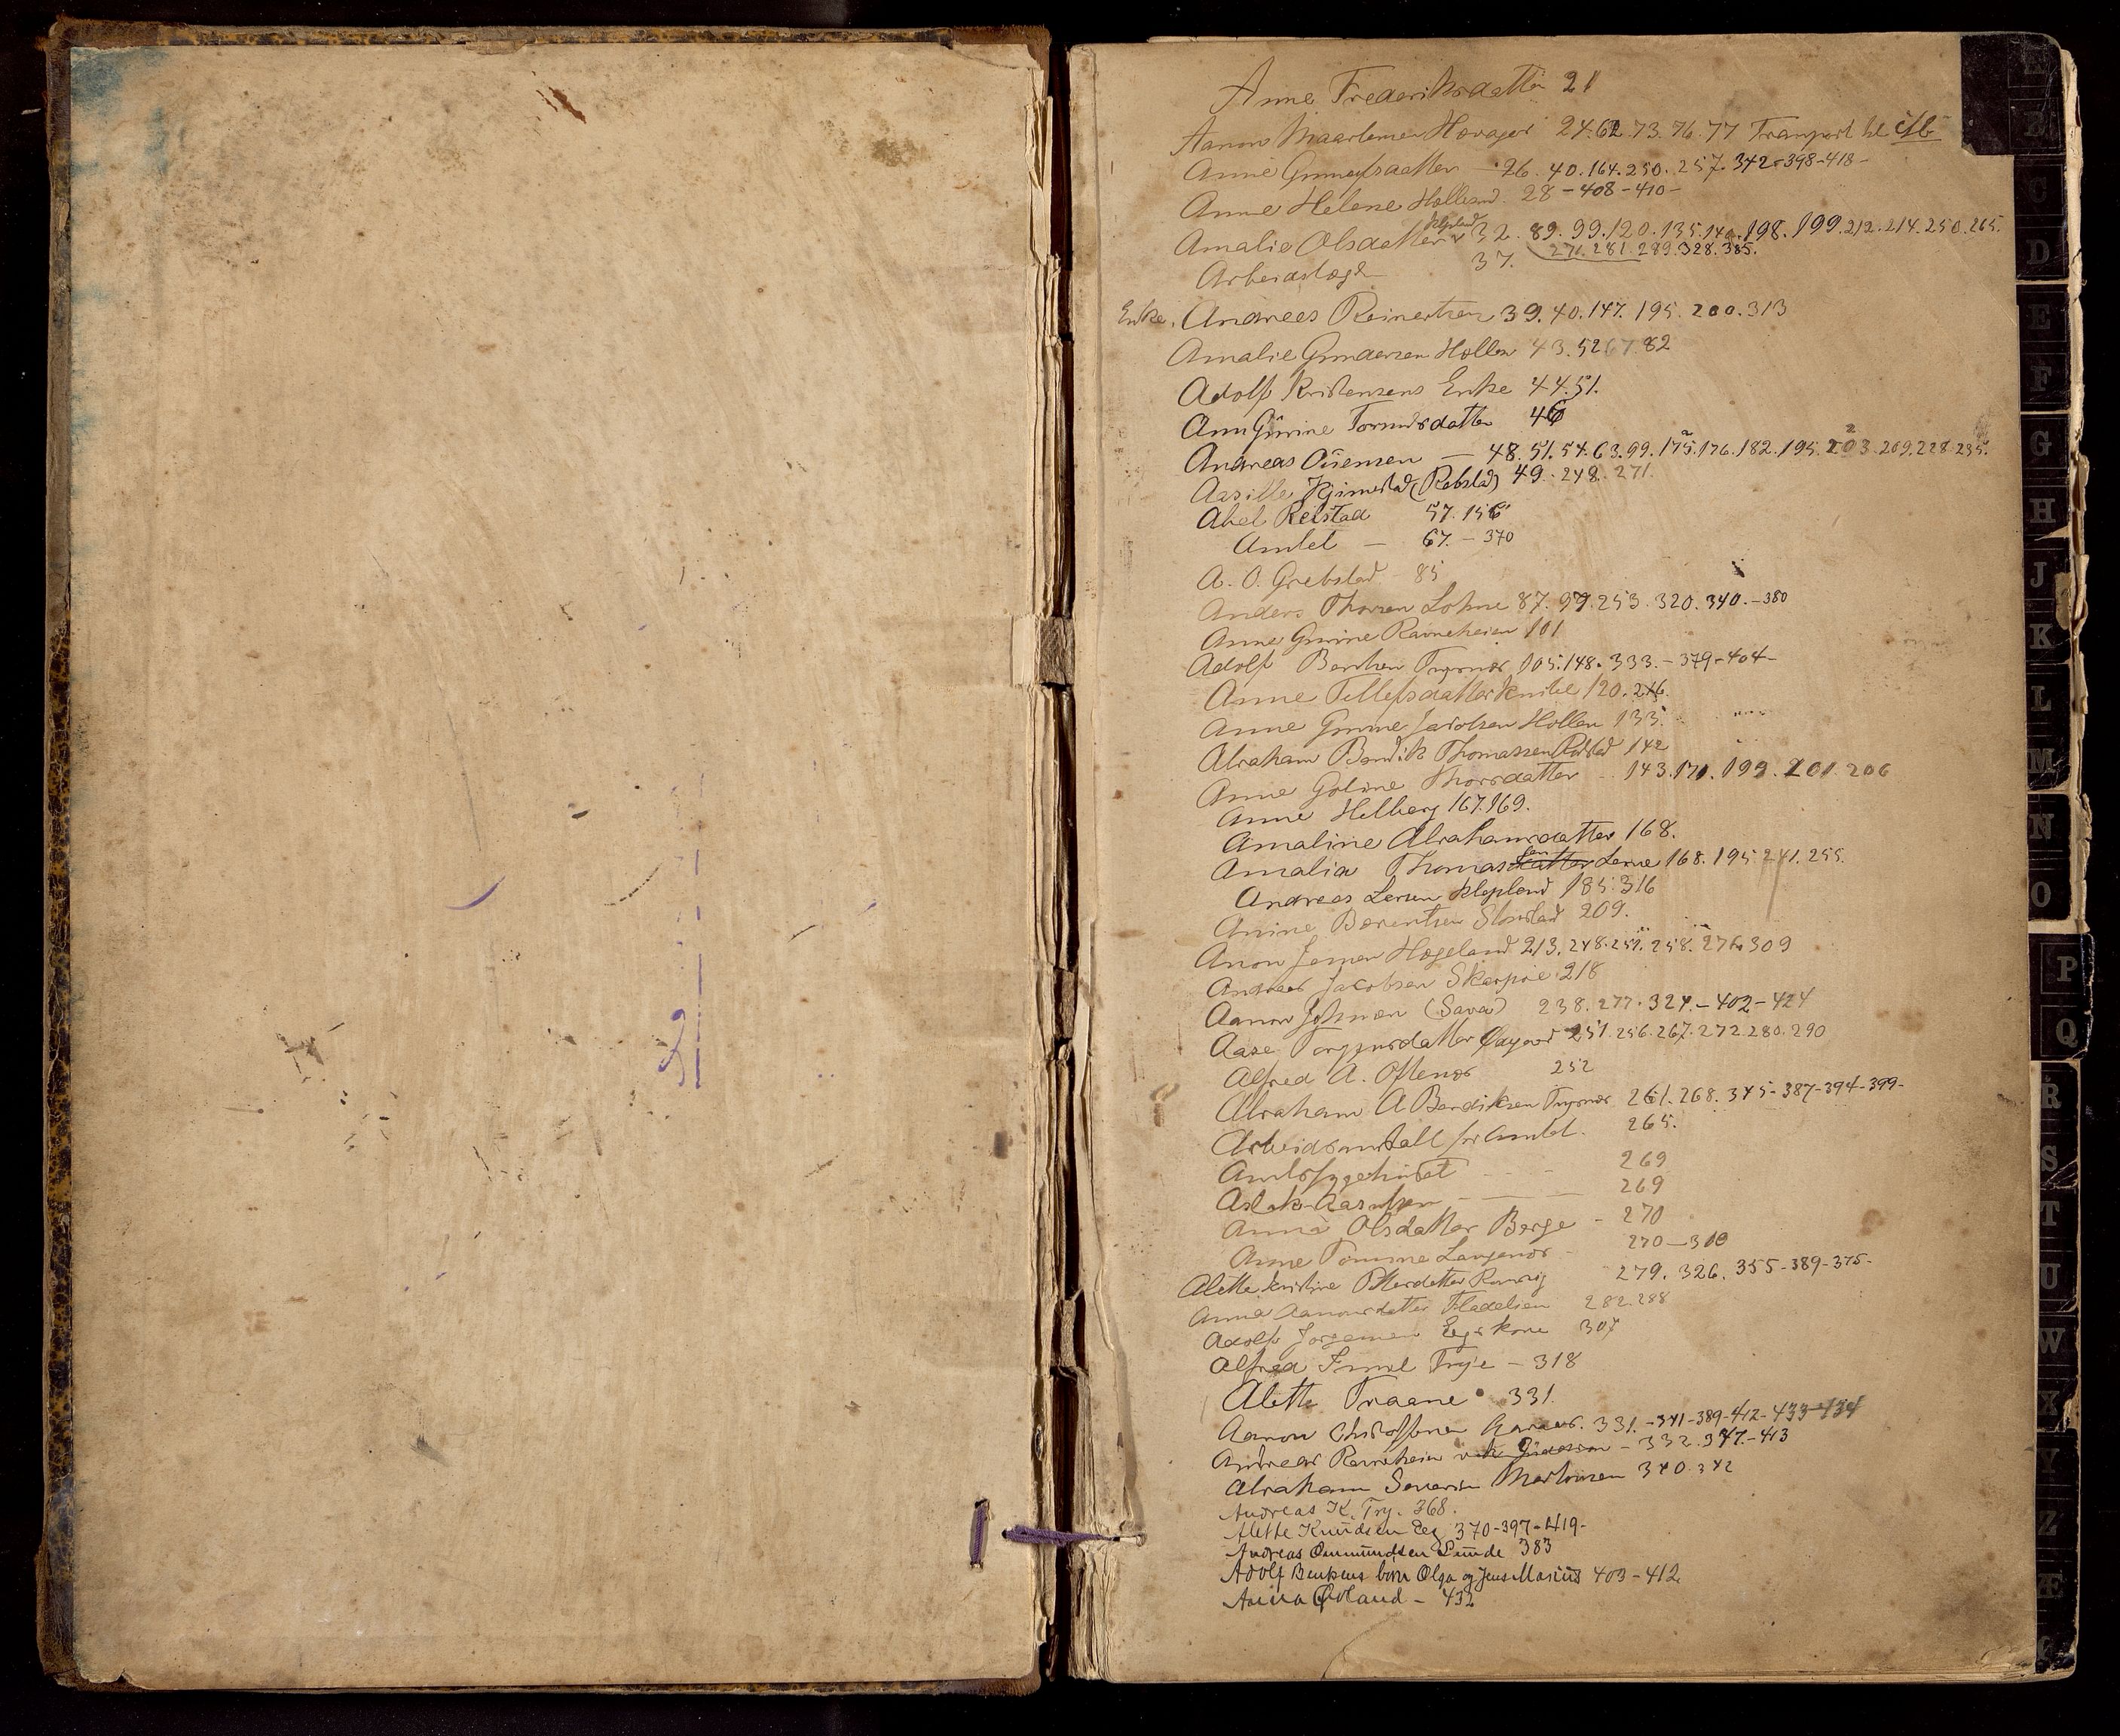 Anne Frederiksdatter 21
Aanon 24. 62. 73. 76. 77 Transport til
Anne 26. 40. 164. 250. 257. 342-398-418-
Anne Helene Holland 28-408-410-
Klepland
Amalie Olsdatter 32. 89. 99. 120. 135. 140. 198. 199. 212. 214. 250. 265.
271. 281. 289. 328. 385.
37.
Enke. Andrees Reinertsen 39. 40. 147. 195. 200. 313
Amalie Gundersen Hollen 43. 52 67. 82
Adolf Kristensens Enke 44. 51.
Ann Gurine 46
Andreas — 48. 51. 54. 63. 99. 175. 176. 182. 195. 203. 209. 228. 235.
(Rebstad) 49. 248. 271.
Abel Reistad 57. 156
Amtet — 67. - 370
A. O. Grebstad 85
Anders Thorsen Lohne 87. 99. 253. 320. 340. - 380
Anne Gurine Ravneheien 101
Adolf Trysnes 105. 148. 333. - 379-404-
Anne Tellefsdatter 120. 216.
Anne Gurine Jacobsen Hollen 133.
Abraham Bendik Thomassen 142
Anne Goline Thorsdatter 143. 171. 199. 201. 206
Anne Helberg 167. 169.
Amaline Abrahamsdatter 168.
sen
Amalia Thomasdatter 168. 195. 241. 255.
Andreas Larsen Klepland 185. 316
Anine Berentsen 209.
Anon Jensen Hægeland 213. 248. 251. 258. 276. 309
Andreas Jacobsen 218
Aanon Johnsen (Sava) 238. 277. 324. - 402-424
Aase Torgjusdatter 251. 256. 267. 272. 280. 290
Alfred A. Oftenes 252
Abraham A Bendiksen Trysnes 261. 268. 345-387-394-399-
Arbeidsanstalt for Amtet. 265.
Amtssygehuset 269
Aslak Aasulfsen 269
Anna Olsdatter Berge - 270
Anne Tomine Langenes 270-310
Alette Kristine Pettersdatter 279. 326. 355-389-375-
Anna Aanonsdatter 282. 288
Adolf Jørgensen Egs kone 307
Alfred Emil Trye - 318
Alette Traane 331.
Aanon Christoffersen 331. -341-389-412-433-434
Andreas Ravneheien - 332. 347. -413
Abraham Severin Martinsen 340. 342
Andreas K. Try. 368.
Alette Knudsen Eeg 370-397-419-
Andreas Ommundsen Lunde 383
Adolf Benksens børn Olga og Jens Marius 403-412
432
B
C
D
E
F
G
H
J
K
L
M
N
O
P
Q
R
S
T
U
W
X
Y
Z
Æ